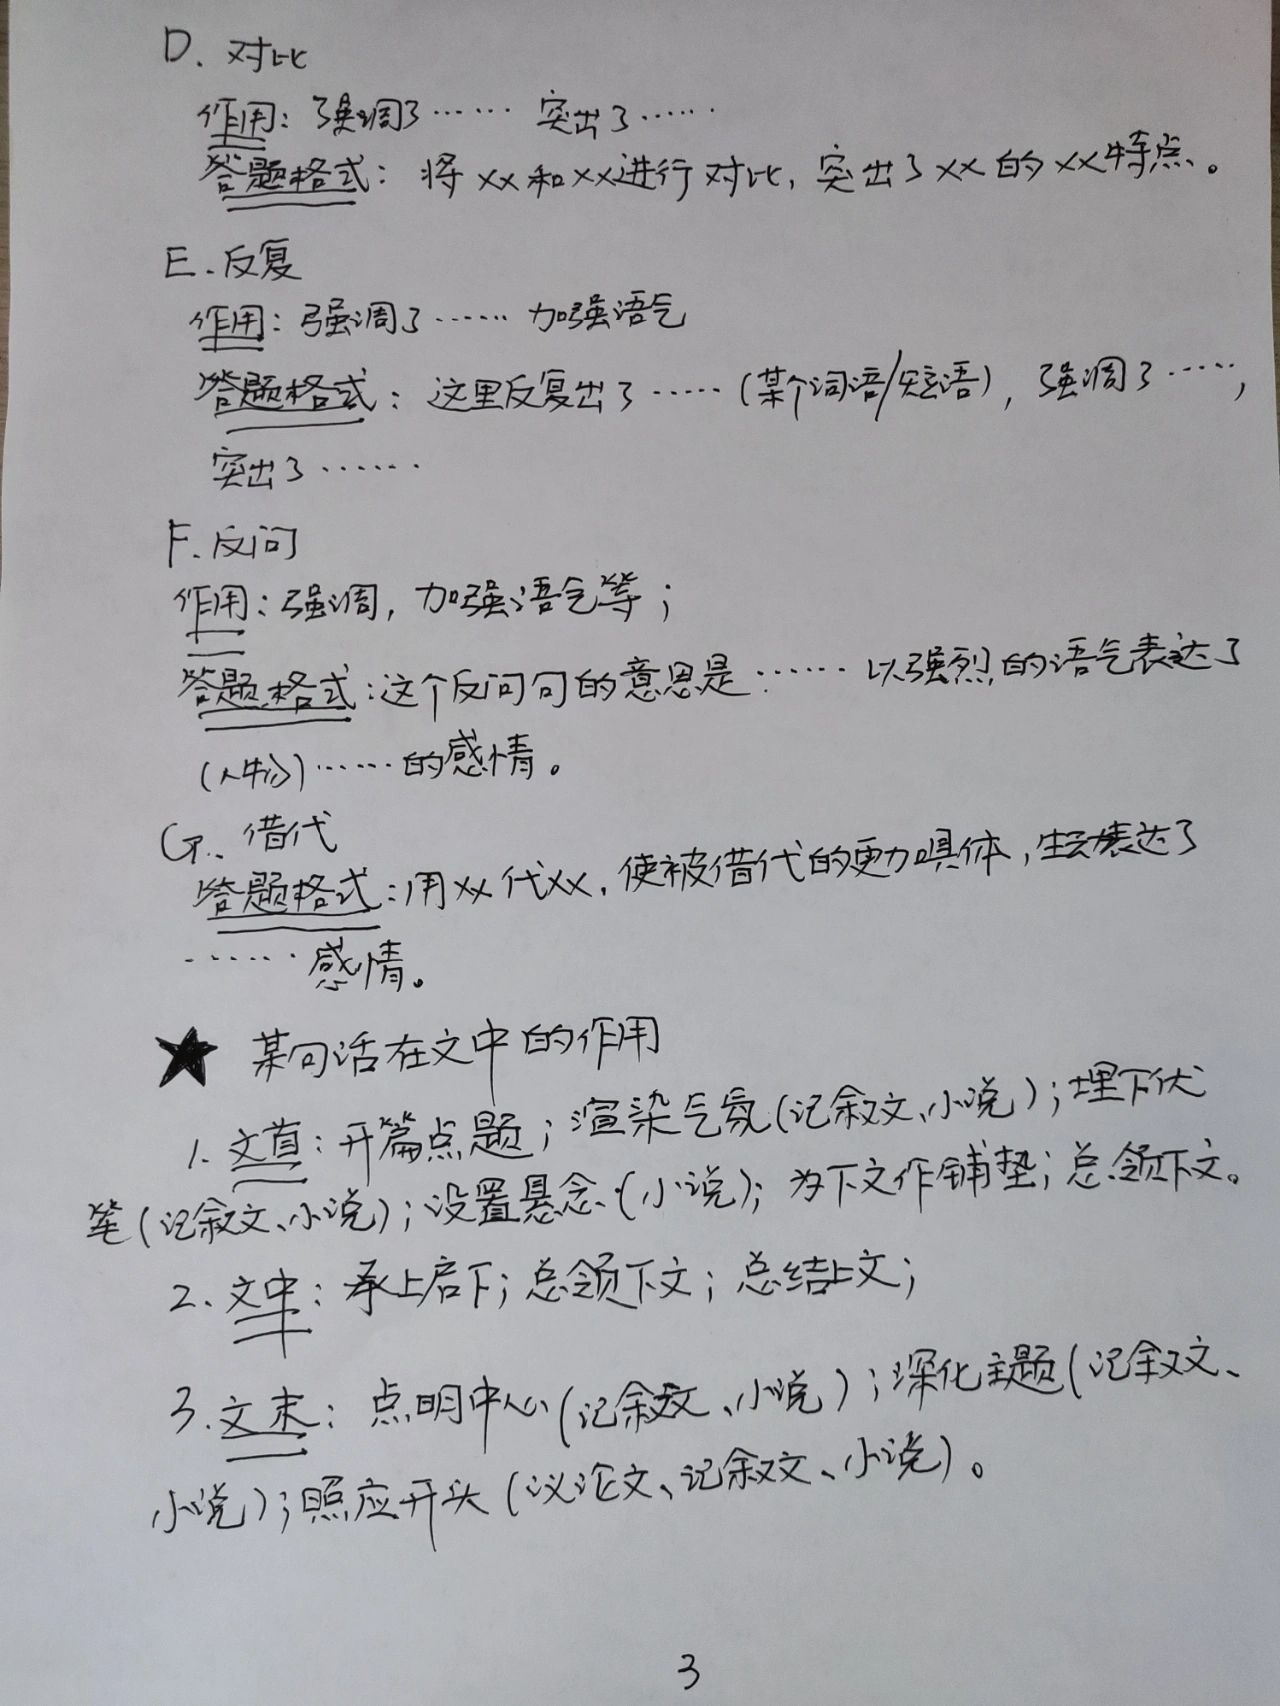 D. 对比
作用：强调了…… 突出了……
答题格式：将xx和xx进行对比，突出了xx的xx特点。
E. 反复
作用：强调了…… 加强语气
答题格式：这里反复出了……（某个词语/短语），强调了……，
突出了……
F. 反问
作用：强调，加强语气等；
答题格式：这个反问句的意思是……以强烈的语气表达了
（人物）……的感情。
G. 借代
答题格式：用xx代xx，使被借代的更加具体，生动表达了
……感情。
★ 某句话在文中的作用
1. 文首：开篇点题；渲染气氛（记叙文、小说）；埋下伏
笔（记叙文、小说）；设置悬念（小说）；为下文作铺垫；总领下文。
2. 文中：承上启下；总领下文；总结上文；
3. 文末：点明中心（记叙文、小说）；深化主题（记叙文、
小说）；照应开头（议论文、记叙文、小说）。
3